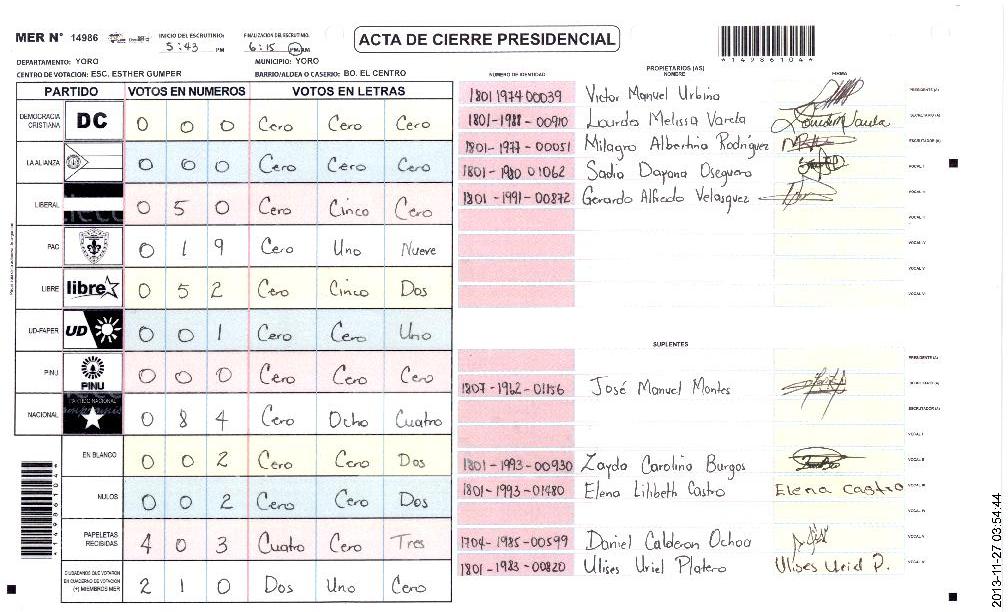 MER N° 14986
INICIO DEL ESCRUTINIO: 5:43 PM
FINALIZACION DEL ESCRUTINIO: 6:15 PM AM
ACTA DE CIERRE PRESIDENCIAL
*14986104*
DEPARTAMENTO: YORO
MUNICIPIO: YORO
CENTRO DE VOTACION: ESC. ESTHER GUMPER
BARRIO/ALDEA O CASERIO: BO. EL CENTRO
PARTIDO VOTOS EN NUMEROS VOTOS EN LETRAS
DEMOCRACIA CRISTIANA DC 0 0 0 Cero Cero Cero
LA ALIANZA 0 0 0 Cero Cero Cero
LIBERAL 0 5 0 Cero Cinco Cero
PAC 0 1 9 Cero Uno Nueve
LIBRE libre 0 5 2 Cero Cinco Dos
UD-FAPER UD 0 0 1 Cero Cero Uno
PINU PINU 0 0 0 Cero Cero Cero
NACIONAL PARTIDO NACIONAL 0 8 4 Cero Ocho Cuatro
EN BLANCO 0 0 2 Cero Cero Dos
NULOS 0 0 2 Cero Cero Dos
PAPELETAS RECIBIDAS 4 0 3 Cuatro Cero Tres
CIUDADANOS QUE VOTARON EN CUADERNO DE VOTACION (+) MIEMBROS MER 2 1 0 Dos Uno Cero
*14986104*
PROPIETARIOS (AS)
NUMERO DE IDENTIDAD NOMBRE FIRMA
1801 1974 00039 Victor Manuel Urbina PRESIDENTE (A)
1801-1988-00910 Lourdes Melissa Varela SECRETARIO (A)
1801-1977-00051 Milagro Albertina Rodriguez ESCRUTADOR (A)
1801-1980 01062 Sadia Dayana Oseguera VOCAL I
1801-1991-00872 Gerardo Alfredo Velasquez VOCAL II
VOCAL III
VOCAL IV
VOCAL V
VOCAL VI
SUPLENTES
PRESIDENTE (A)
1807-1962-01156 José Manuel Montes SECRETARIO (A)
ESCRUTADOR (A)
VOCAL I
1801-1993-00930 Zayda Carolina Burgos VOCAL II
1801-1993-01480 Elena Lilibeth Castro Elena Castro VOCAL III
VOCAL IV
1704-1985-00599 Daniel Calderon Ochoa VOCAL V
1801-1983-00820 Ulises Uriel Platero Ulises Uriel P. VOCAL VI
2013-11-27 03:54:44